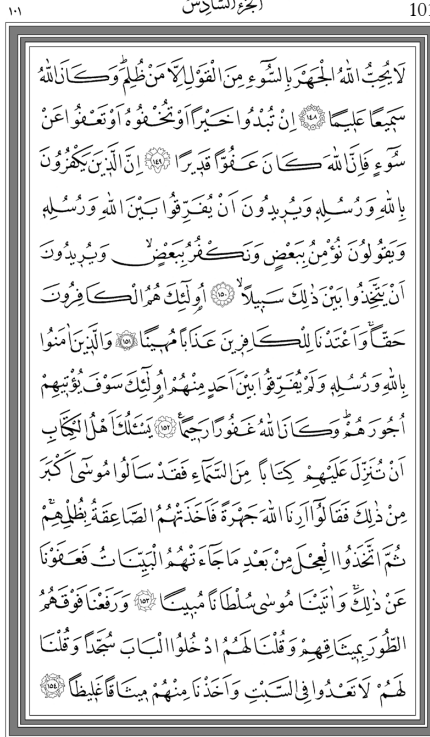 ١٠١ الجزء السادس 101
لَا يُحِبُّ اللّٰهُ الْجَهْرَ بِالسُّوءِ مِنَ الْقَوْلِ اِلَّا مَنْ ظُلِمَۜ وَكَانَ اللّٰهُ
سَمِيعًا عَلِيمًا ﴿١٤٨﴾ اِنْ تُبْدُوا خَيْرًا اَوْ تُخْفُوهُ اَوْ تَعْفُوا عَنْ
سُوءٍ فَاِنَّ اللّٰهَ كَانَ عَفُوًّا قَدِيرًا ﴿١٤٩﴾ اِنَّ الَّذِينَ يَكْفُرُونَ
بِاللّٰهِ وَرُسُلِهِ وَيُرِيدُونَ اَنْ يُفَرِّقُوا بَيْنَ اللّٰهِ وَرُسُلِهِ
وَيَقُولُونَ نُؤْمِنُ بِبَعْضٍ وَنَكْفُرُ بِبَعْضٍۙ وَيُرِيدُونَ
اَنْ يَتَّخِذُوا بَيْنَ ذٰلِكَ سَبِيلًاۙ ﴿١٥٠﴾ اُولٰٓئِكَ هُمُ الْكَافِرُونَ
حَقًّاۚ وَاَعْتَدْنَا لِلْكَافِرِينَ عَذَابًا مُهِينًا ﴿١٥١﴾ وَالَّذِينَ اٰمَنُوا
بِاللّٰهِ وَرُسُلِهِ وَلَمْ يُفَرِّقُوا بَيْنَ اَحَدٍ مِنْهُمْ اُولٰٓئِكَ سَوْفَ يُؤْتِيهِمْ
اُجُورَهُمْۜ وَكَانَ اللّٰهُ غَفُورًا رَحِيمًا۟ ﴿١٥٢﴾ يَسْـَٔلُكَ اَهْلُ الْكِتَابِ
اَنْ تُنَزِّلَ عَلَيْهِمْ كِتَابًا مِنَ السَّمَٓاءِ فَقَدْ سَاَلُوا مُوسٰٓى اَكْبَرَ
مِنْ ذٰلِكَ فَقَالُٓوا اَرِنَا اللّٰهَ جَهْرَةً فَاَخَذَتْهُمُ الصَّاعِقَةُ بِظُلْمِهِمْۚ
ثُمَّ اتَّخَذُوا الْعِجْلَ مِنْ بَعْدِ مَا جَٓاءَتْهُمُ الْبَيِّنَاتُ فَعَفَوْنَا
عَنْ ذٰلِكَۚ وَاٰتَيْنَا مُوسٰى سُلْطَانًا مُبِينًا ﴿١٥٣﴾ وَرَفَعْنَا فَوْقَهُمُ
الطُّورَ بِمِيثَاقِهِمْ وَقُلْنَا لَهُمُ ادْخُلُوا الْبَابَ سُجَّدًا وَقُلْنَا
لَهُمْ لَا تَعْدُوا فِي السَّبْتِ وَاَخَذْنَا مِنْهُمْ مِيثَاقًا غَلِيظًا ﴿١٥٤﴾